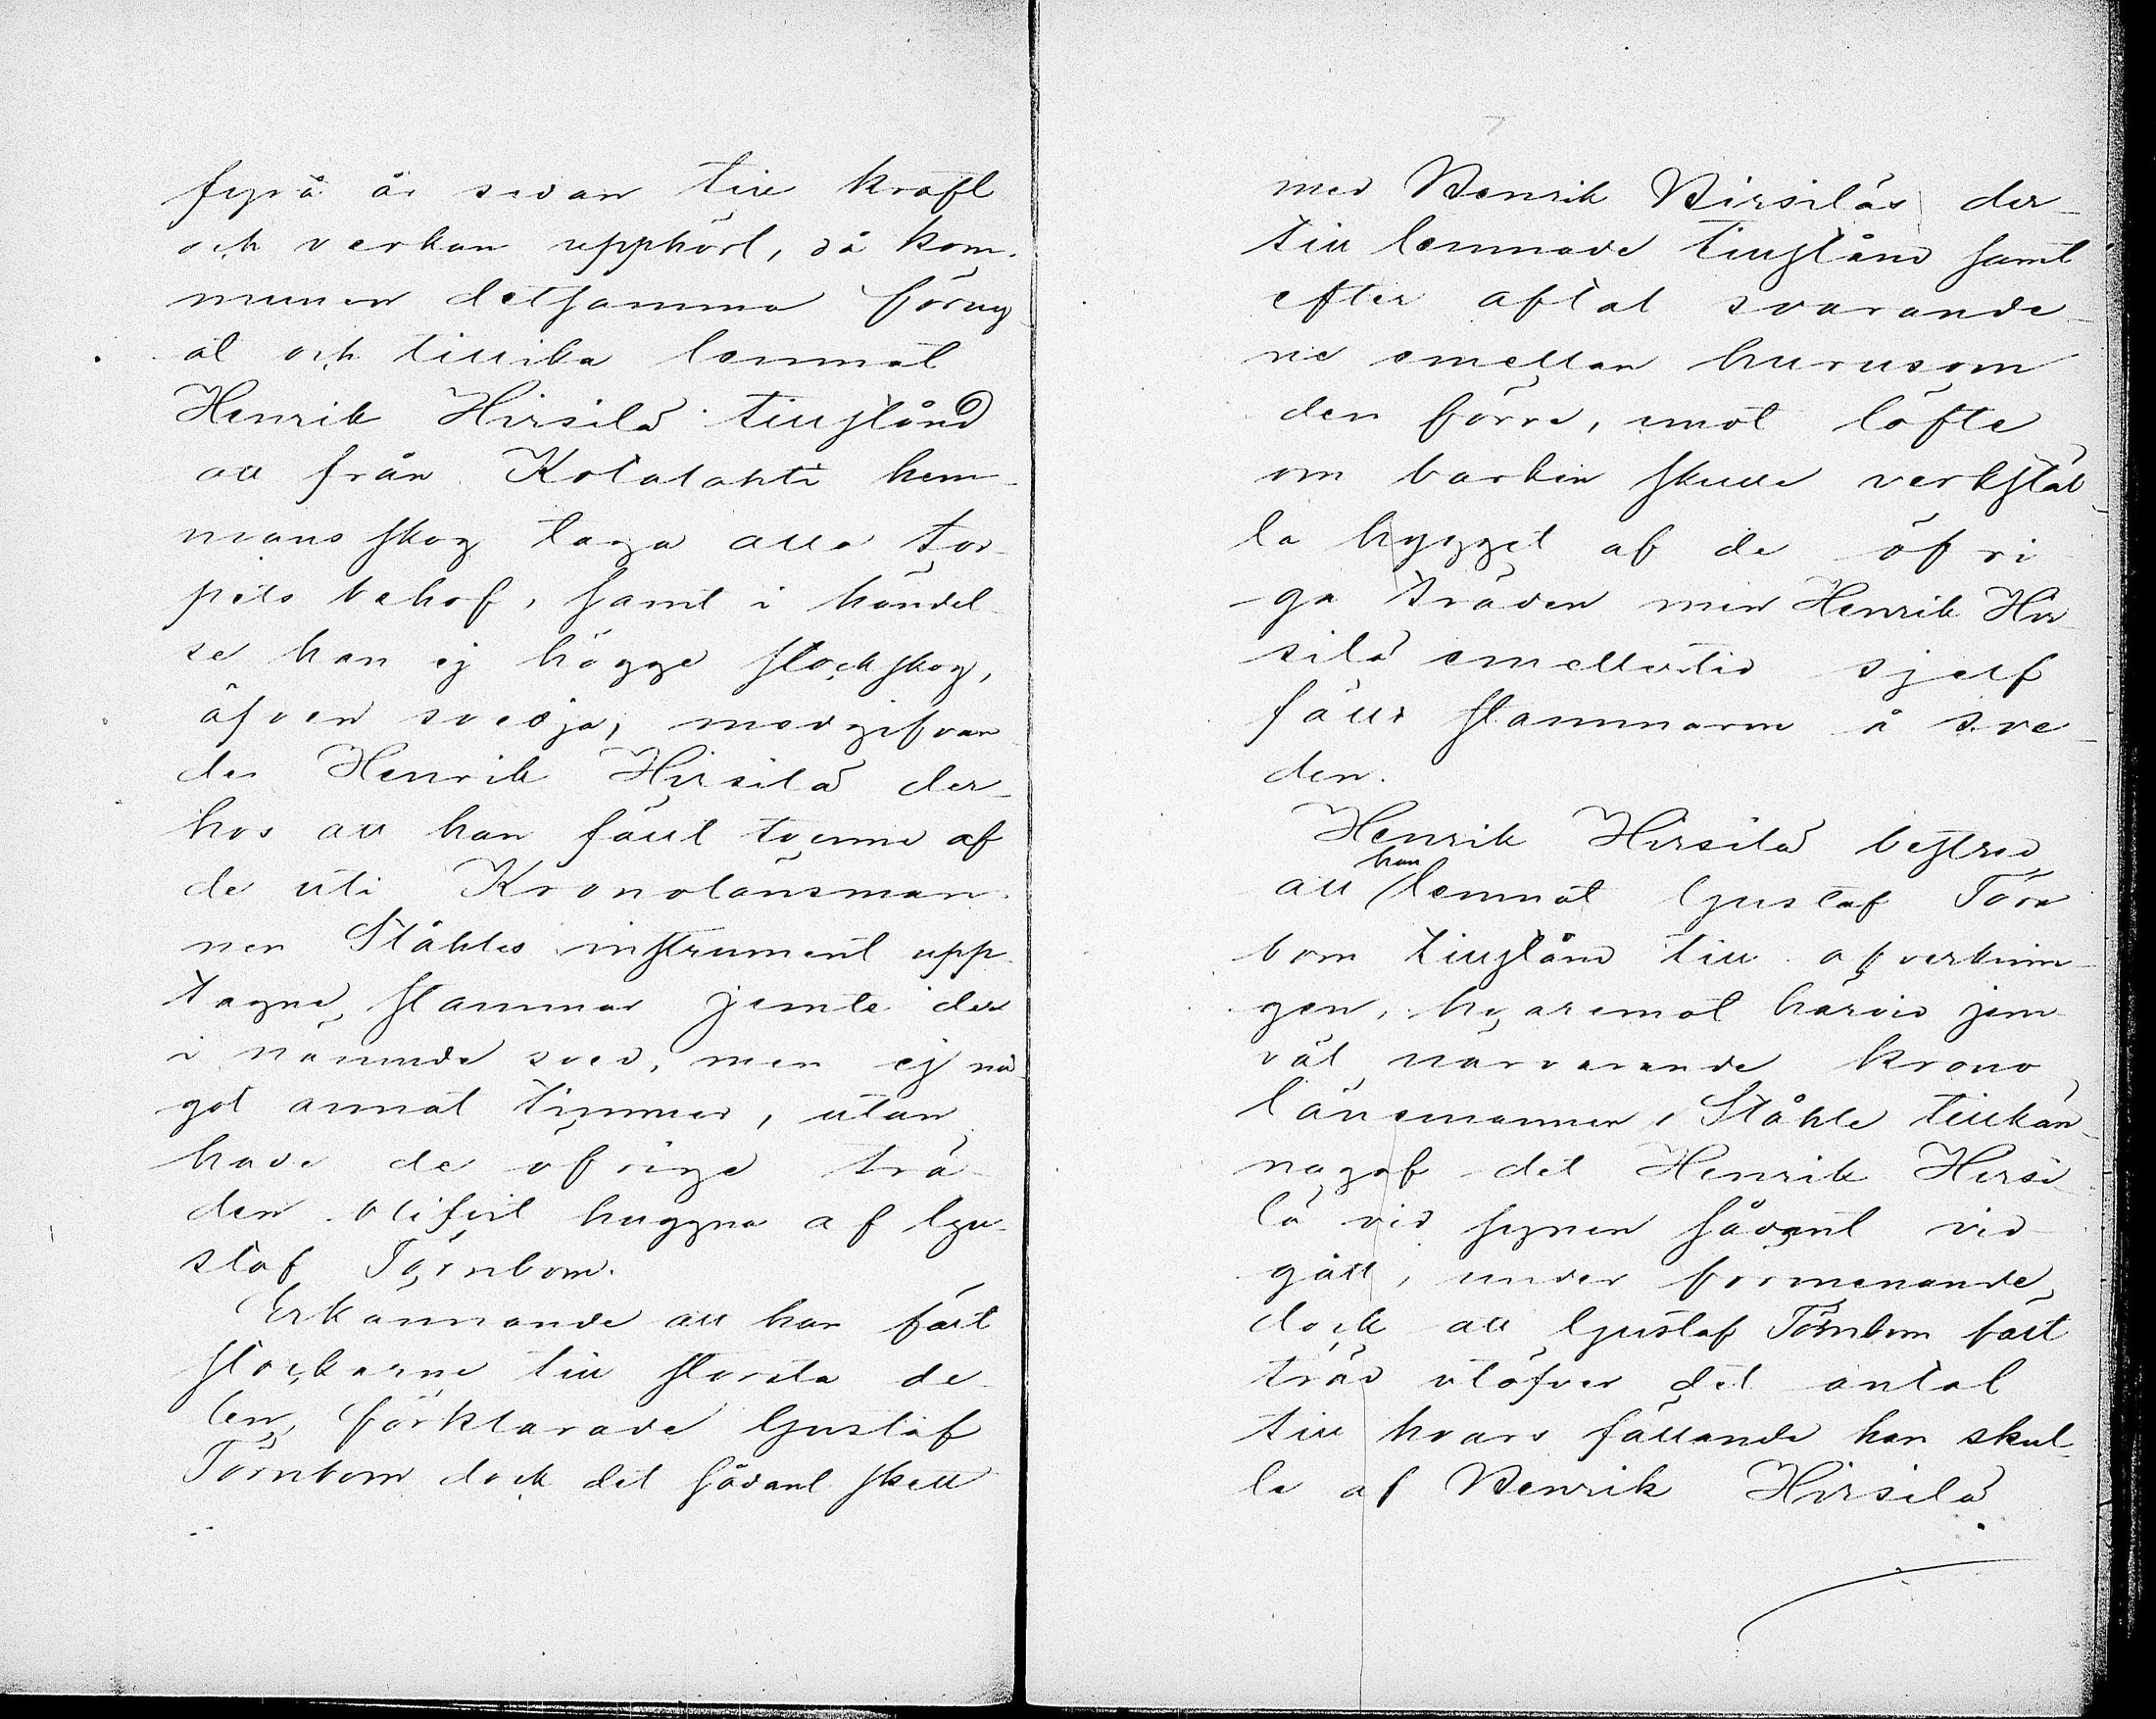 fyra år sedan till kraft
och verkan upphört, då kom-
munen detsamma förny-
at och tillika lemnat
Henrik Hirsilä tillstånd
att från Kolalahti hem-
mans skog taga alla tor-
pets behof, samt i händel-
se han ej högge stockskog,
äfven svedja, medgifvan-
de Henrik Hirsilä der-
hos att han fällt tvenne af
de uti Kronolänsman-
nen Ståhles instrument upp-
tagne stammar jemte der
i nämnde sved, men ej nå-
got annat timmer, utan
hade de öfrige trä-
den blifvit huggna af Gu-
staf Törnbom.
Erkännande att han fält
stockarne till största de-
len, förklarade Gustaf
Törnbom dock det sådant skett
med Henrik Hirsiläs der-
till lemnade tillstånd samt
efter aftal svarande-
ne emellan hurusom
den förre, emot löfte
om barken skulle verkstäl-
la hygget af de öfri-
ga träden men Henrik Hir-
silä emellertid sjelf
fälla stammarne å sve-
den.
Henrik Hirsilä bestred
att han lemnat Gustaf Törn
bom tillstånd till afverknin-
gen, hvaremot härvid jem-
väl närvarande krono
länsmannen Ståhle tillkän-
nagaf det Henrik Hirsi-
lä vid synen sådant vid-
gått, under förmenande
dock att Gustaf Törnbom fält
träd utöfver det antal
till hvars fällande han skul-
le af Henrik Hirsilä